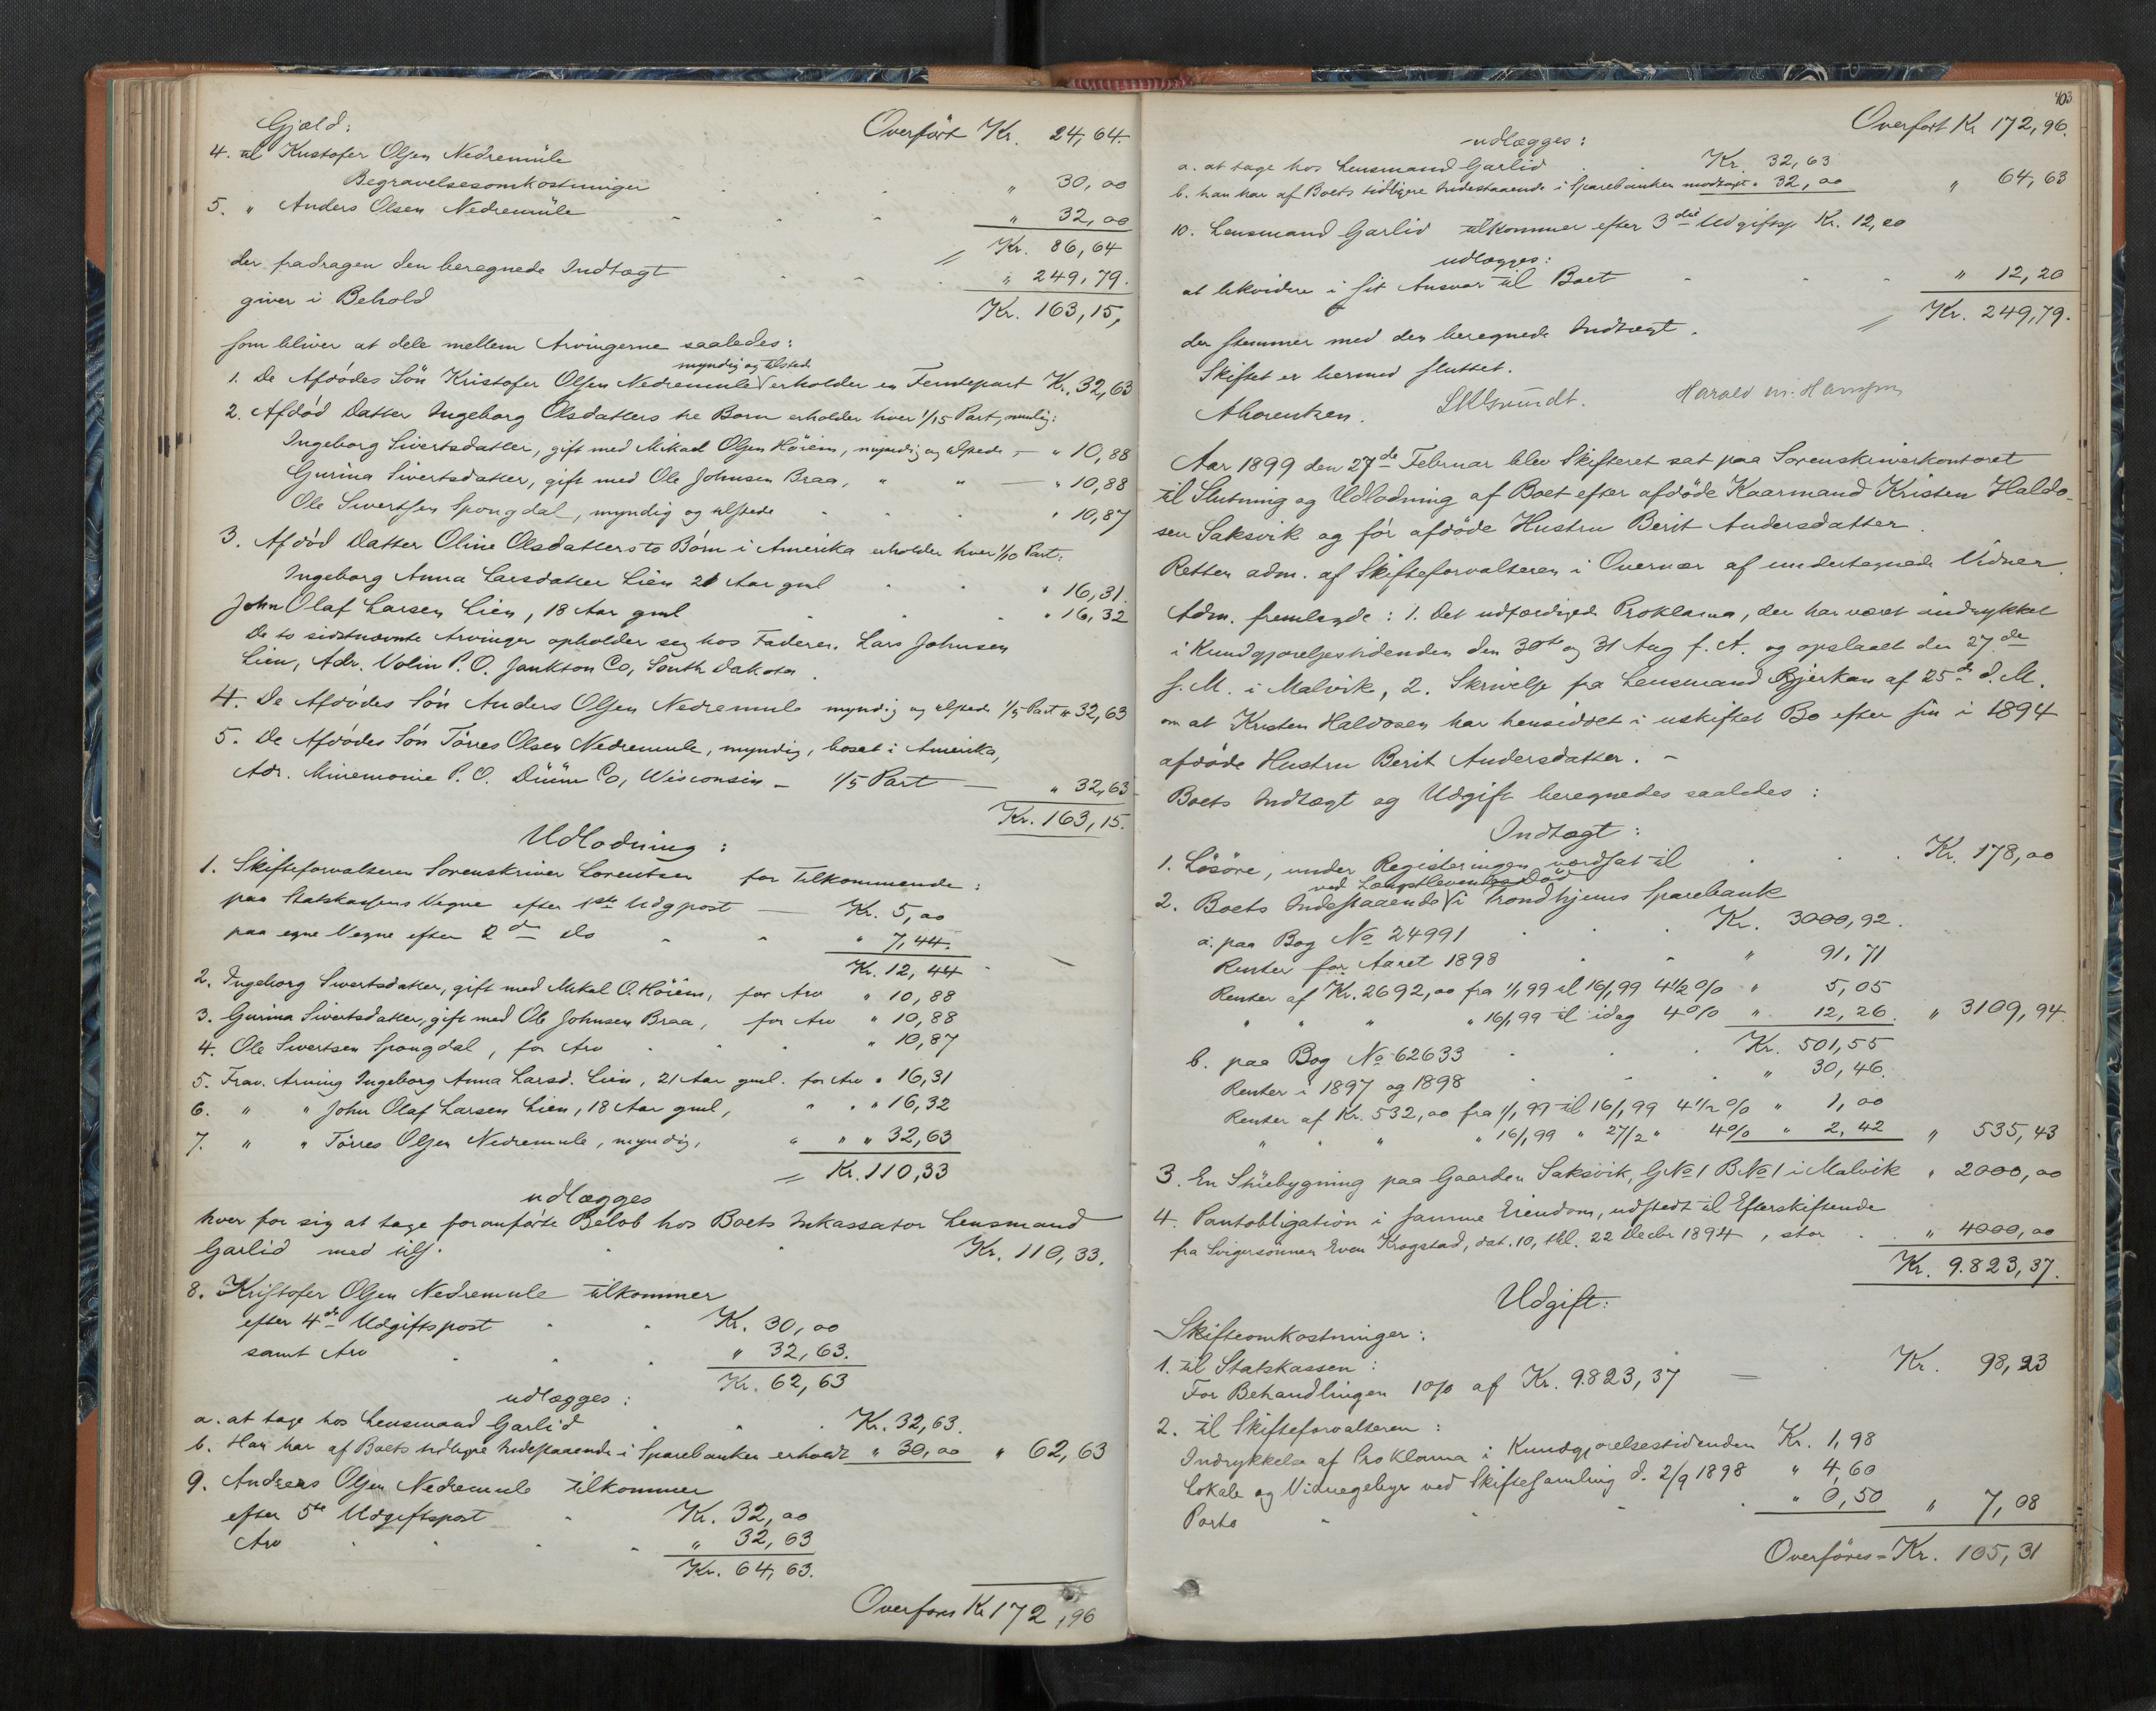 Gjæld:
Overført Kr. 24,64.
4. til Kristofer Olsen Nedremüle
Begravelsesomkostninger " 30,00
5. " Anders Olsen Nedremüle " 32,00
Kr. 86,64
der fradragen den beregnede Indtægt " 249,79.
giver i Behold Kr. 163,15,
som bliver at dele mellem Arvingerne saaledes:
myndig og tilstede
1. De Afdødes Søn Kristofer Olsen Nedremule erholder en Femtepart Kr. 32,63
2. Afdød Datter Ingeborg Olsdatters tre Børn erholder hver 1/15 Part, nemlig:
Ingeborg Sivertsdatter, gift med Mikael Olsen Höiem, myndig og tilstede — " 10,88
Gurina Sivertsdatter, gift med Ole Johnsen Braa, " " — " 10,88
Ole Sivertsen Spongdal, myndig og tilstede " 10,87
3. Afdød Datter Oline Olsdatters to Børn i Amerika erholder hver 1/10 Part:
Ingeborg Anna Larsdatter Lien 21 Aar gml " 16,31.
John Olaf Larsen Lien, 18 Aar gml " 16,32
De to sidstnævnte Arvinger opholder sig hos Faderen Lars Johnsen
Lien, Adr. Volin P.O. Jankton Co, South Dakota.
4. De Afdødes Søn Anders Olsen Nedremule myndig og tilstede 1/5 Part " 32,63
5. De Afdødes Søn Törres Olsen Nedremule, myndig, bosat i Amerika,
Adr. Minemonie P.O. Düün Co, Wisconsin — 1/5 Part — " 32,63
Kr. 163,15.
Udlodning:
1. Skifteforvalteren Sorenskriver Lorentsen for Tilkommende:
paa Statskassens Vegne efter 1ste Udgpost — Kr. 5,00
paa egne Vegne efter 2den do " 7,44.
Kr. 12,44
2. Ingeborg Sivertsdatter, gift med Mikal O. Höiem, for Arv " 10,88
3. Gurina Sivertsdatter, gift med Ole Johnsen Braa, for Arv " 10,88
4. Ole Sivertsen Spongdal, for Arv " 10,87
5. Frav. Arving Ingeborg Anna Larsd. Lien, 21 Aar gml. for Arv " 16,31
6. " " John Olaf Larsen Lien, 18 Aar gml, " " " 16,32
7. " " Törres Olsen Nedremule, myndig, " " " 32,63
Kr. 110,33
udlægges
hver for sig at tage foranførte Beløb hos Boets Inkassator Lensmand
Garlid med tils. Kr. 110,33.
8. Kristofer Olsen Nedremule tilkommer
efter 4de Udgiftspost Kr. 30,00
samt Arv " 32,63.
Kr. 62,63
udlægges:
a. at tage hos Lensmand Garlid Kr. 32,63.
b. Han har af Boets tidligere Indestaaende i Sparebanken erholdt " 30,00 " 62,63
9. Andreas Olsen Nedremule tilkommer
efter 5te Udgiftspost Kr. 32,00
Arv " 32,63
Kr. 64,63.
Overføres Kr 172,96
403
Overført Kr 172,96.
udlægges:
a. at tage hos Lensmand Garlid Kr. 32,63
b. han har af Boets tidligere Indestaaende i Sparebanken modtaget " 32,00 " 64,63
10. Lensmand Garlid tilkommer efter 3die Udgiftsp. Kr. 12,20
udlægges:
at likvidere i sit Ansvar til Boet " 12,20
Kr. 249,79.
der stemmer med den beregnede Indtægt.
Skiftet er hermed sluttet.
ALorentzen. Harald M. Hansen
Aar 1899 den 27de Februar blev Skifteret sat paa Sorenskriverkontoret
til Slutning og Udlodning af Boet efter afdøde Kaarmand Kristen Haldo-
sen Saksvik og før afdøde Hustru Berit Andersdatter.
Retten adm. af Skifteforvalteren i Overvær af undertegnede Vidner.
Adm. fremlagde: 1. Det udfærdigede Proklama, der har været indrykket
i Kundgjørelsestidenden den 30te og 31 Aug f. A. og opslaaet den 27de
s. M. i Malvik, 2. Skrivelse fra Lensmand Bjerkan af 25de d. M.
om at Kristen Haldosen har hensiddet i uskiftet Bo efter sin i 1894
afdøde Hustru Berit Andersdatter. –
Boets Indtægt og Udgift beregnedes saaledes:
Indtægt:
1. Løsøre, under Registeringen værdsat til Kr. 178,00
ved Længstlevendes Død
2. Boets Indestaaende i Trondhjems Sparebank
a. paa Bog No 24991 Kr. 3000,92.
Renter for Aaret 1898 " 91,71
Renter af Kr. 2692,00 fra 1/1 99 til 16/1 99 4 1/2 % " 5,05
" " " " 16/1 99 til idag 4 % " 12,26. " 3109,94
b. paa Bog No 62633 Kr. 501,55
Renter i 1897 og 1898 " 30,46.
Renter af Kr. 532,00 fra 1/1 99 til 16/1 99 4 1/2 % " 1,00
" " " " 16/1 99 " 27/2 " 4 % " 2,42 " 535,43
3. En Stübygning paa Gaarden Saksvik, GNo 1 BNo 1 i Malvik " 2000,00
4. Pantobligation i samme Eiendom, udstedt til Efterskiftende
fra Svigersønnen Even Krogstad, dat. 10, thl. 22 Decbr 1894, stor " 4000,00
Kr. 9.823,37.
Udgift:
Skifteomkostninger:
1. til Statskassen:
For Behandlingen 1 % af Kr. 9.823,37 = Kr. 98,23
2. til Skifteforvalteren:
Indrykkelse af Proklama i Kundgjørelsestidenden Kr. 1,98
Lokale og Vidnegebyr ved Skiftesamling d. 2/9 1898 " 4,60
Porto " 0,50 " 7,08
Overføres = Kr. 105,31